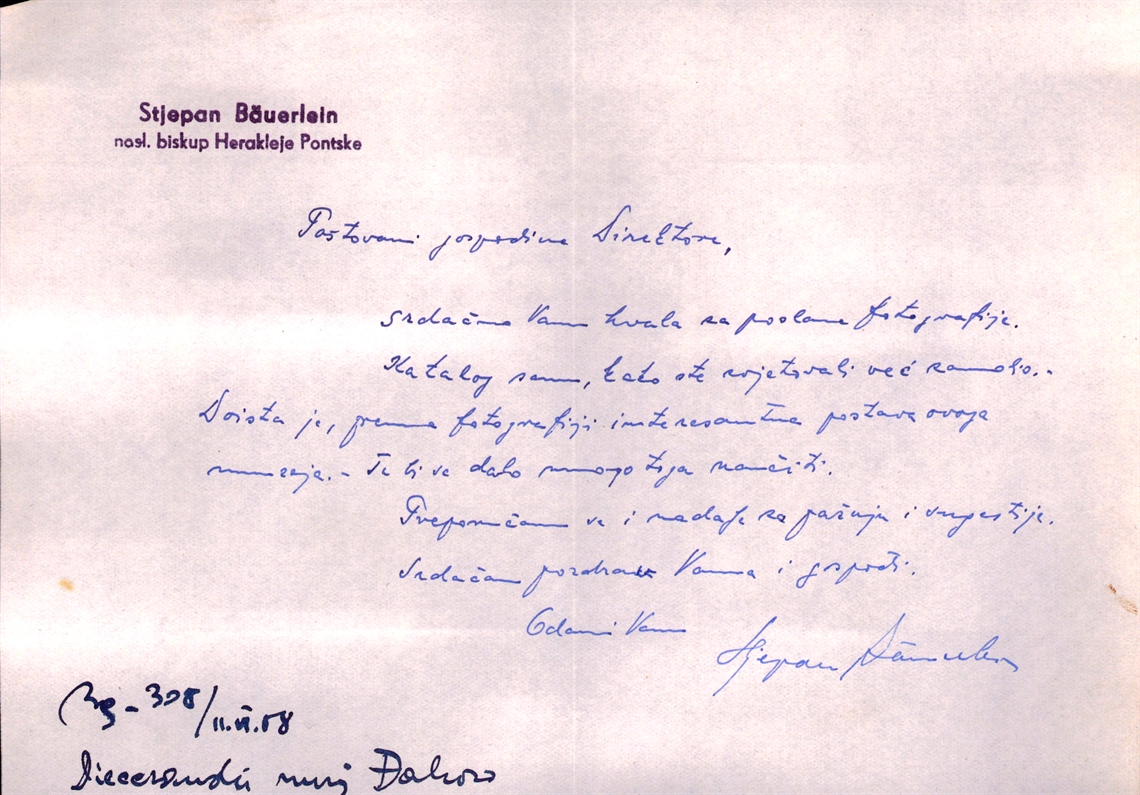 Stjepan Bäuerlein
nasl. biskup Herakleje Pontske
Poštovani gospodine Direktore,
srdačno Vam hvala za poslane fotografije.
Katalog sam, kako ste svjetovali već zamolio.-
Doista je, prema fotografiji interesantna postava ovoga
muzeja.- Tu bi se dalo mnogo toga naučiti.
Preporučam se i nadalje za pažnju i sugestije.
Srdačan pozdrav Vama i gospođi.
Odani Vam Stjepan Bäuerlein
308/11.VI.68
muzej Đakovo